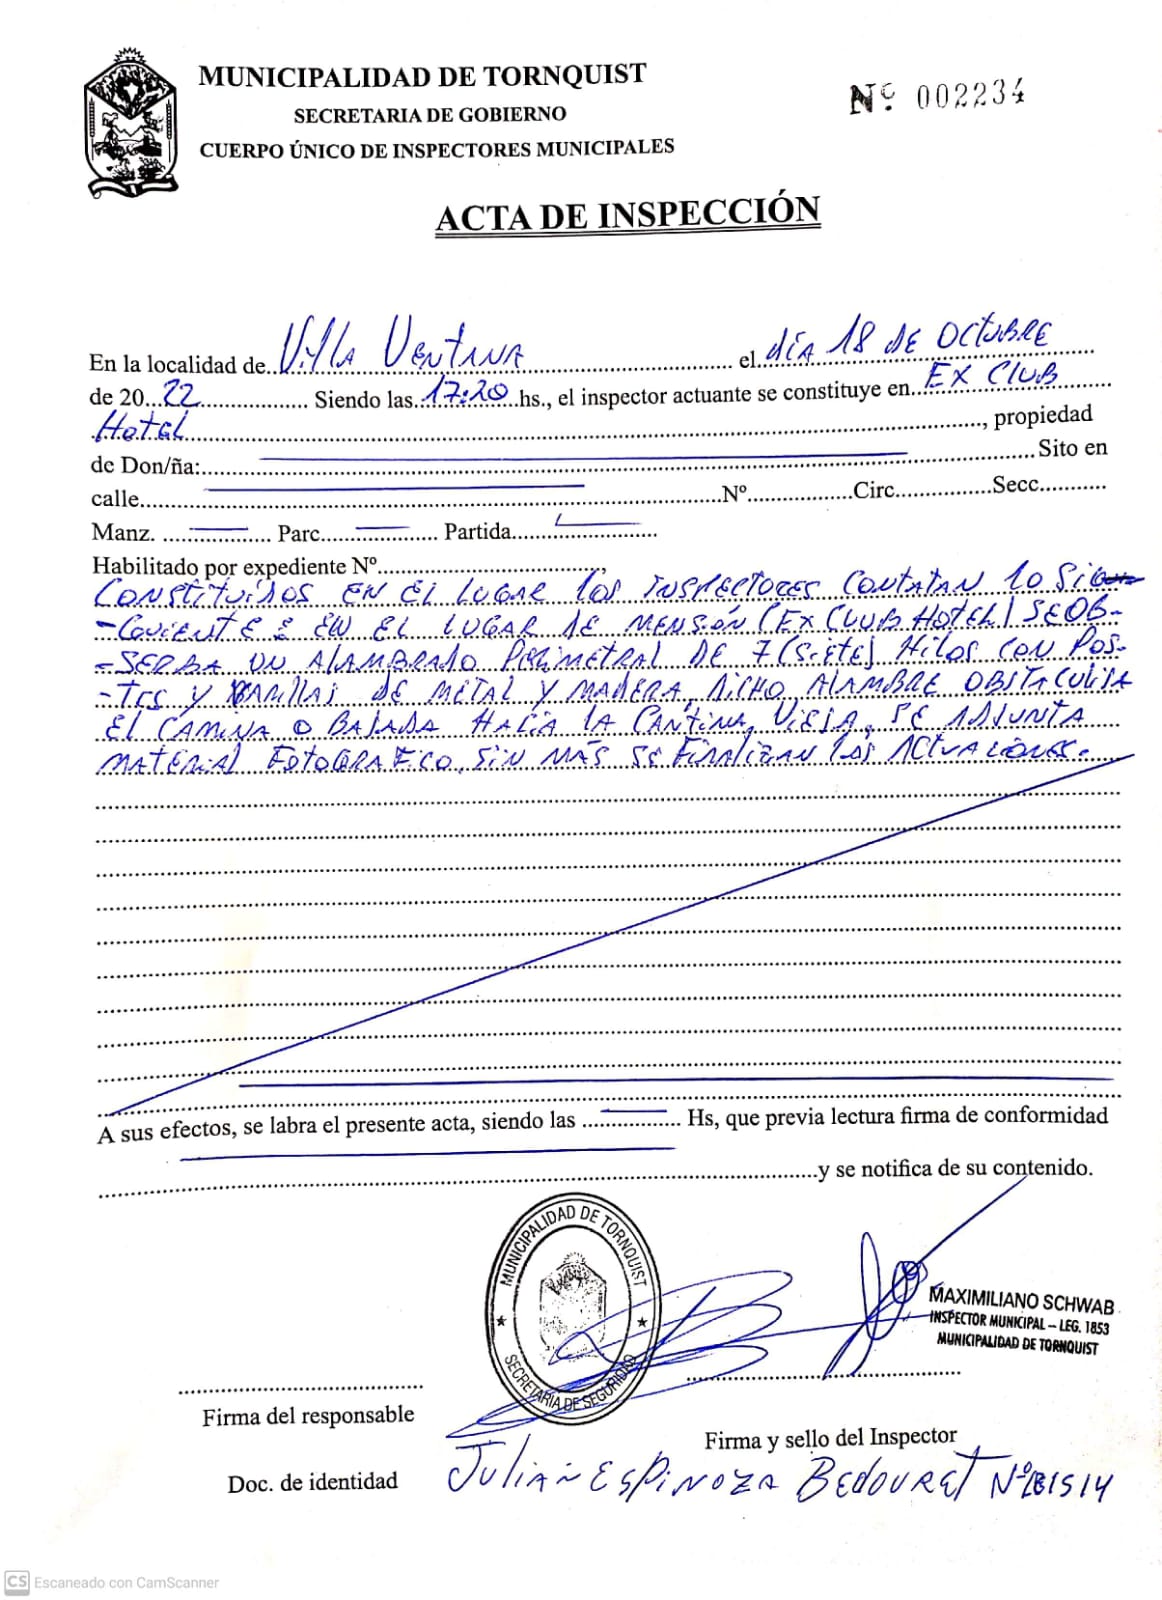 MUNICIPALIDAD DE TORNQUIST
SECRETARIA DE GOBIERNO
CUERPO ÚNICO DE INSPECTORES MUNICIPALES
Nº 002234
ACTA DE INSPECCIÓN
En la localidad de Villa Ventana el día 18 DE OCTUBRE
de 20 22 Siendo las 17:20 hs., el inspector actuante se constituye en EX CLUB
HOTEL, propiedad
de Don/ña: Sito en
calle Nº Circ. Secc.
Manz. Parc. Partida
Habilitado por expediente Nº
CONSTITUÍDOS EN EL LUGAR LOS INSPECTORES CONTATAN LO SIG
EN EL LUGAR DE MENSIÓN (EX CLUB HOTEL) SE OB-
-SERBA UN ALAMBRADO PERIMETRAL DE 7 (SIETE) HILOS CON POS-
-TES Y VARILLAS DE METAL Y MADERA, DICHO ALAMBRE OBSTACULISA
EL CAMINA O BAJADA HACIA LA CANTINA VIEJA, SE ADJUNTA
MATERIAL FOTOGRAFICO, SIN MÁS SE FINALIZAN LAS ACTUACIONES.
A sus efectos, se labra el presente acta, siendo las Hs, que previa lectura firma de conformidad
y se notifica de su contenido.
MUNICIPALIDAD DE TORNQUIST
SECRETARIA DE SEGURIDAD
MAXIMILIANO SCHWAB
INSPECTOR MUNICIPAL – LEG. 1853
MUNICIPALIDAD DE TORNQUIST
Firma del responsable
Firma y sello del Inspector
Doc. de identidad
JULIAN ESPINOZA BEDOURET Nº
CS Escaneado con CamScanner